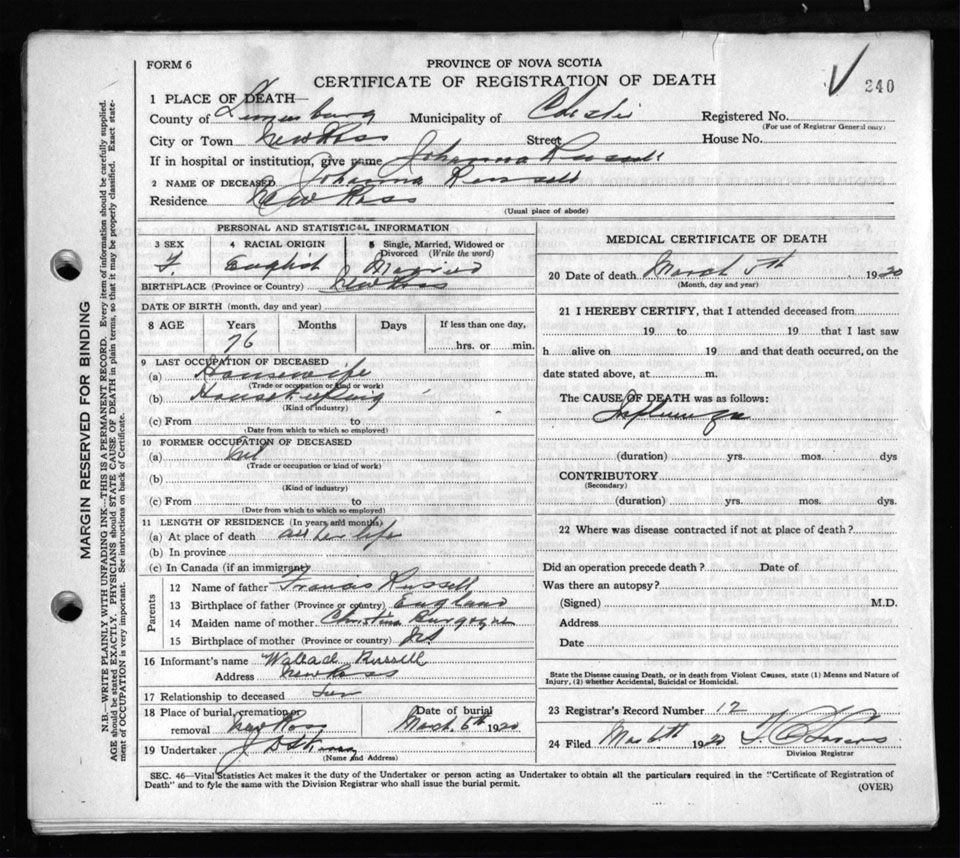 FORM 6
PROVINCE OF NOVA SCOTIA
CERTIFICATE OF REGISTRATION OF DEATH
240
1 PLACE OF DEATH—
County of Lunenburg Municipality of Chester Registered No.
(For use of Registrar General only)
City or Town New Ross Street House No.
If in hospital or institution, give name Johanna Russell
2 NAME OF DECEASED Johanna Russell
Residence New Ross
(Usual place of abode)
PERSONAL AND STATISTICAL INFORMATION
3 SEX F.
4 RACIAL ORIGIN English
5 Single, Married, Widowed or Divorced (Write the word) Married
BIRTHPLACE (Province or Country) New Ross
DATE OF BIRTH (month, day and year)
8 AGE Years Months Days If less than one day,
76 hrs. or min.
9 LAST OCCUPATION OF DECEASED
(a) Housewife
(Trade or occupation or kind or work)
(b) Housekeeping
(Kind of industry)
(c) From to
(Date from which to which so employed)
10 FORMER OCCUPATION OF DECEASED
(a) Nil
(Trade or occupation or kind of work)
(b)
(Kind of industry)
(c) From to
(Date from which to which so employed)
11 LENGTH OF RESIDENCE (In years and months)
(a) At place of death all her life
(b) In province
(c) In Canada (if an immigrant)
Parents
12 Name of father Francis Russell
13 Birthplace of father (Province or country) England
14 Maiden name of mother Christina
15 Birthplace of mother (Province or country) NS
16 Informant's name Russell
Address New Ross
17 Relationship to deceased Son
18 Place of burial, cremation or removal New Ross Date of burial March 6th 1920
19 Undertaker J
(Name and Address)
MEDICAL CERTIFICATE OF DEATH
20 Date of death March 5th 1920
(Month, day and year)
21 I HEREBY CERTIFY, that I attended deceased from
19 to 19 that I last saw
h alive on 19 and that death occurred, on the
date stated above, at m.
The CAUSE OF DEATH was as follows:
Influenza
(duration) yrs. mos. dys
CONTRIBUTORY
(Secondary)
(duration) yrs. mos. dys.
22 Where was disease contracted if not at place of death?
Did an operation precede death? Date of
Was there an autopsy?
(Signed) M.D.
Address
Date
State the Disease causing Death, or in death from Violent Causes, state (1) Means and Nature of
Injury, (2) whether Accidental, Suicidal or Homicidal.
23 Registrar's Record Number 12
24 Filed Mar 6th 1920
Division Registrar
SEC. 46—Vital Statistics Act makes it the duty of the Undertaker or person acting as Undertaker to obtain all the particulars required in the "Certificate of Registration of
Death" and to fyle the same with the Division Registrar who shall issue the burial permit.
(OVER)
MARGIN RESERVED FOR BINDING
N.B.—WRITE PLAINLY WITH UNFADING INK—THIS IS A PERMANENT RECORD. Every item of information should be carefully supplied.
AGE should be stated EXACTLY. PHYSICIANS should STATE CAUSE OF DEATH in plain terms, so that it may be properly classified. Exact state-
ment of OCCUPATION is very important. See instructions on back of Certificate.